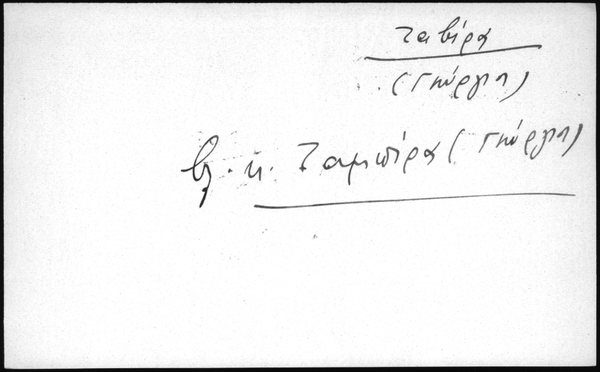 Ταβίρα
(Γκύργιη)
βλ. κ. Ταμπίρα (Γκύργιη)